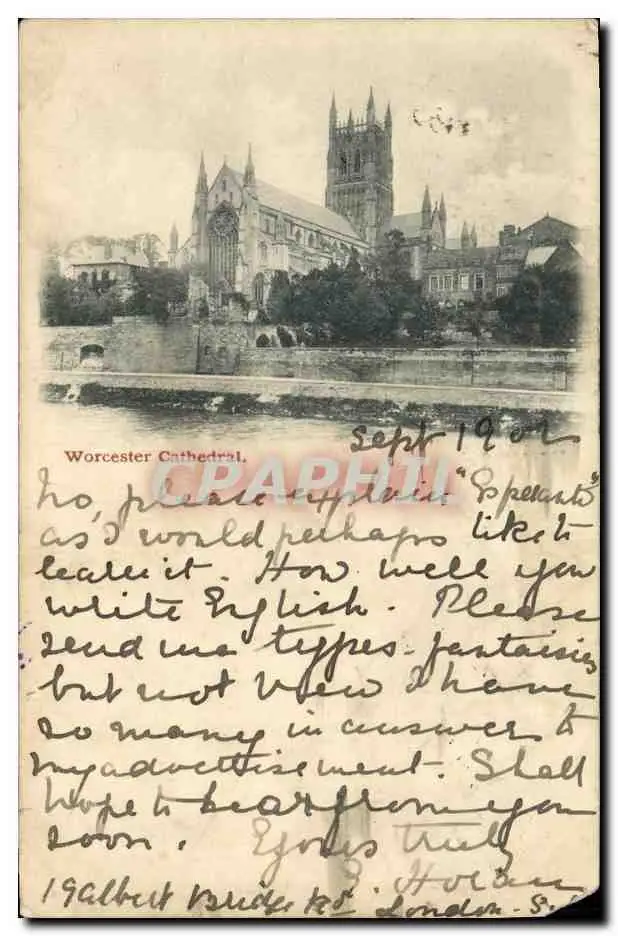 Sept 1902
Worcester Cathedral.
CPARHIL
No, please explain "Esperanto"
as I would perhaps like to
learn it. How well you
write English. Please
send me types - fantaisies
but not view I have
so many in answer to
my advertisement. Shall
hope to hear from you
soon. Yours truly
19 Albert Bridge Rd. London - S.